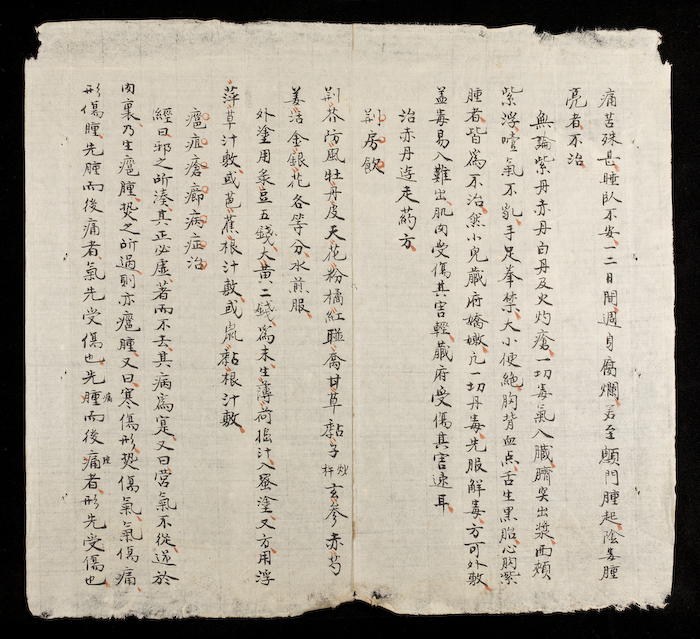 痛苦殊甚睡臥不安一二日間週身腐爛若至顖門腫起陰囊腫
亮者不治
無論紫丹赤丹白丹及火灼瘡一切毒氣入臟臍突出漿面頰
紫浮噎氣不乳手足拳禁大小便絕胸背血点舌生黑胎心胸紫
腫者皆爲不治然小兒臟府嬌嫩凢一切丹毒先服解毒方可外敷
盖毒易入難出肌肉受傷其害輕臟府受傷其害速耳
治赤丹遊走葯方
荆房飲
荆芥防風牡丹皮天花粉橘紅連喬甘草黏子炒杵玄參赤芍
姜活金銀花各等分水煎服
外塗用菉豆五錢大黄二錢爲末生薄荷搗汁入蜜塗又方用浮
萍草汁敷或芭蕉根汁敷或鼠黏根汁敷
癰疽瘡癤病症治
經曰邪之所湊其正必虛著而不去其病爲寔又曰營氣不從逆於
肉裏乃生癰腫𤍠之所過則亦癰腫又曰寒傷形𤍠傷氣氣傷痛
形傷腫先腫而後痛者氣先受傷也先腫而後痛者形先受傷也
痛 腫